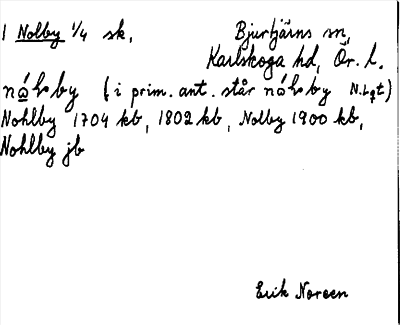 1 Nolby 1/4 sk, Bjurtjärns sn,
Karlskoga hd, Ör. l.
nåłby (i prim. ant. står nåłby N. Lqt)
Nohlby 1704 kb, 1802 kb, Nolby 1900 kb,
Nohlby jb
Erik Noreen